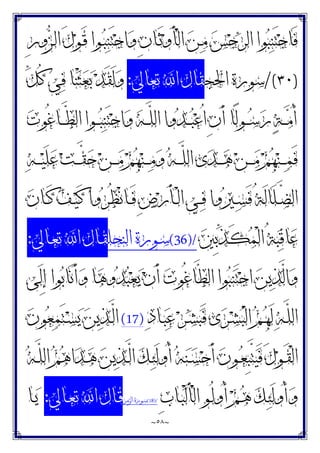 فَاجْتَنِبُوا الرِّجْسَ مِنَ الْأَوْثَانِ وَاجْتَنِبُوا قَوْلَ الزُّورِ
(٣٠)/سورة الحج قال الله تعالى: وَلَقَدْ بَعَثْنَا فِي كُلِّ
أُمَّةٍ رَسُولًا أَنِ اعْبُدُوا اللَّهَ وَاجْتَنِبُوا الطَّاغُوتَ
فَمِنْهُمْ مَنْ هَدَى اللَّهُ وَمِنْهُمْ مَنْ حَقَّتْ عَلَيْهِ
الضَّلَالَةُ فَسِيرُوا فِي الْأَرْضِ فَانْظُرُوا كَيْفَ كَانَ
عَاقِبَةُ الْمُكَذِّبِينَ /(36)سورة النحل قال الله تعالى:
وَالَّذِينَ اجْتَنَبُوا الطَّاغُوتَ أَنْ يَعْبُدُوهَا وَأَنَابُوا إِلَى
اللَّهِ لَهُمُ الْبُشْرَى فَبَشِّرْ عِبَادِ (17) الَّذِينَ يَسْتَمِعُونَ
الْقَوْلَ فَيَتَّبِعُونَ أَحْسَنَهُ أُولَئِكَ الَّذِينَ هَدَاهُمُ اللَّهُ
وَأُولَئِكَ هُمْ أُولُو الْأَلْبَابِ (18)/سورة الزمر قال الله تعالى: يَا
~٥٨~